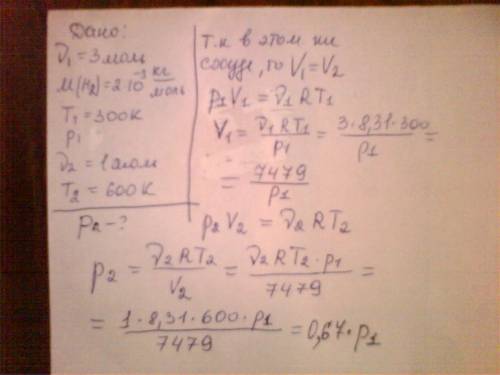 Дано:
ν₁ = 3 моль
M(H₂) = 2·10⁻³ кг/моль
T₁ = 300К
p₁
ν₂ = 1 моль
T₂ = 600 К
p₂ – ?
Т.к в этом же
сосуде, то V₁ = V₂
p₁V₁ = ν₁RT₁
V₁ = ν₁RT₁/p₁ = 3·8,31·300/p₁ =
= 7479/p₁
p₂V₂ = ν₂RT₂
p₂ = ν₂RT₂/V₂ = ν₂RT₂·p₁/7479 =
= 1·8,31·600·p₁/7479 = 0,67·p₁